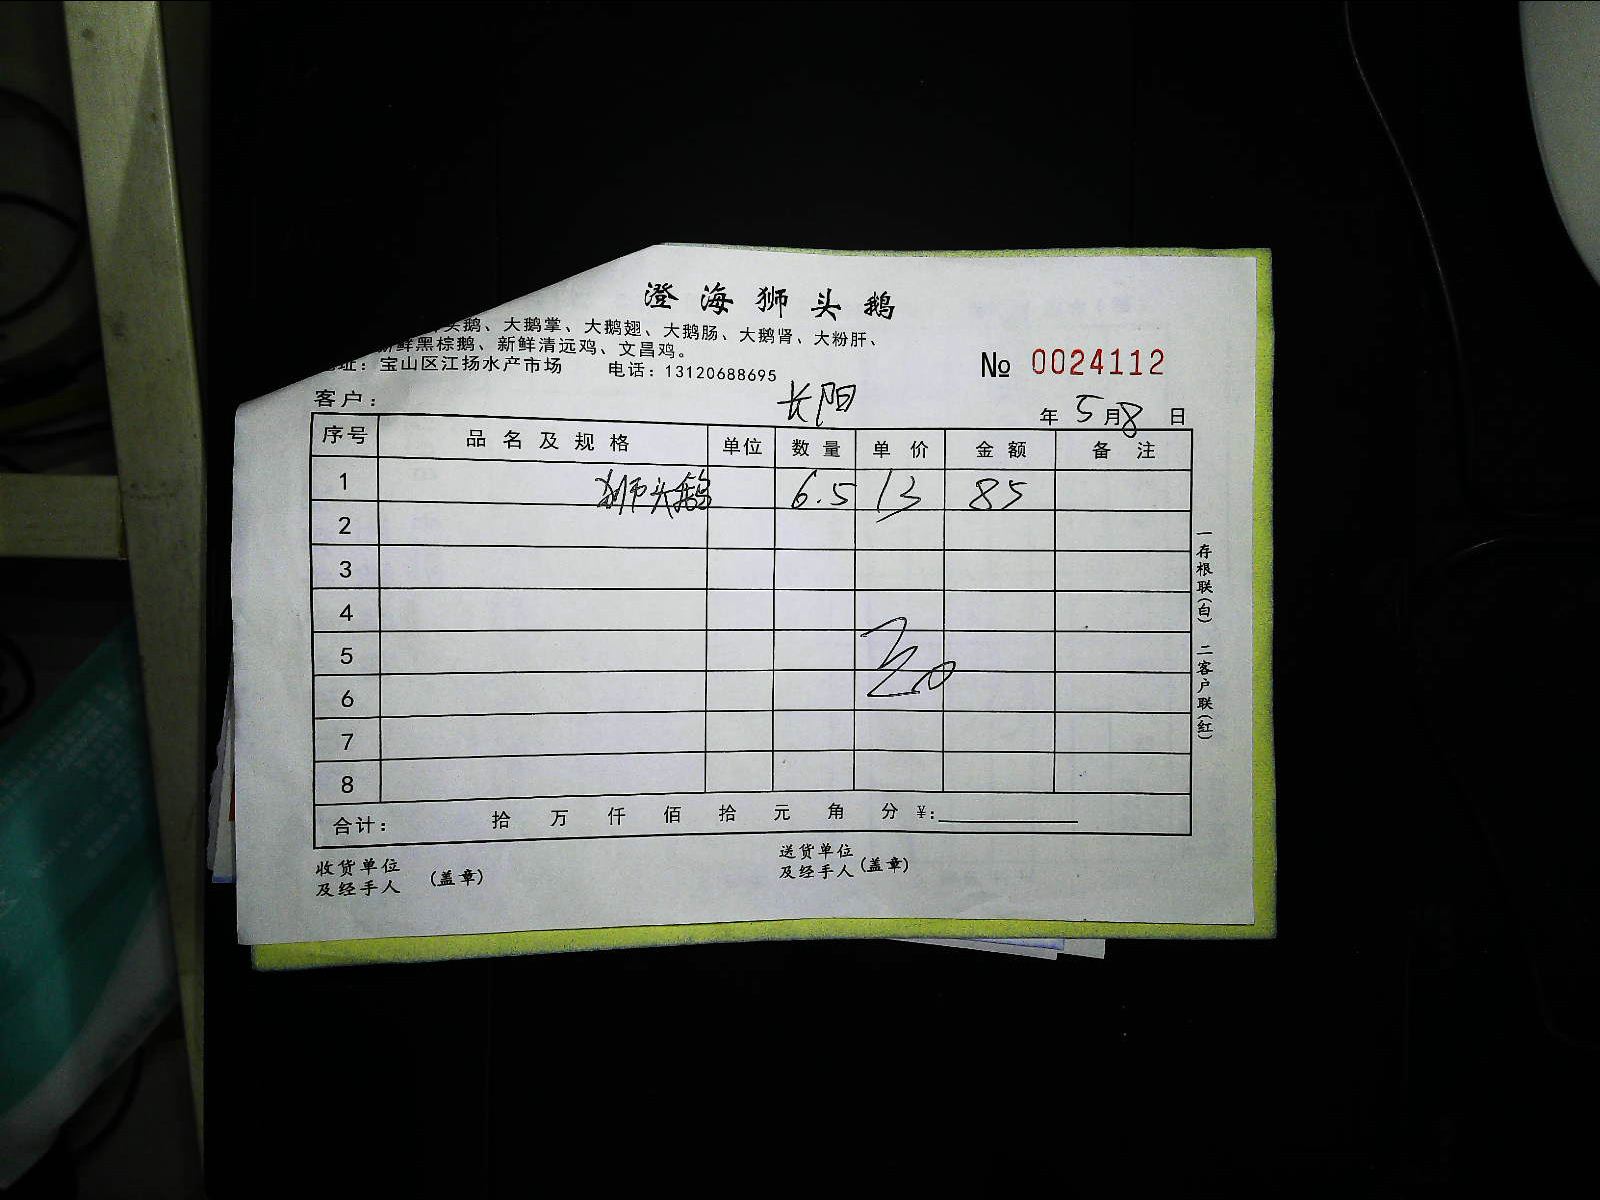 澄海狮头鹅
头鹅、大鹅掌、大鹅翅、大鹅肠、大鹅肾、大粉肝、
鲜黑棕鹅、新鲜清远鸡、文昌鸡。
址：宝山区江扬水产市场 电话：13120688695
№ 0024112
客户： 长阳
年 5 月 8 日
序号 品名及规格 单位 数量 单价 金额 备注
1 狮头鹅 6.5 13 85
2
3
4
5
6
7
8
合计： 拾 万 仟 佰 拾 元 角 分 ¥:
收货单位
及经手人 (盖章)
送货单位
及经手人 (盖章)
一存根联(白) 二客户联(红)